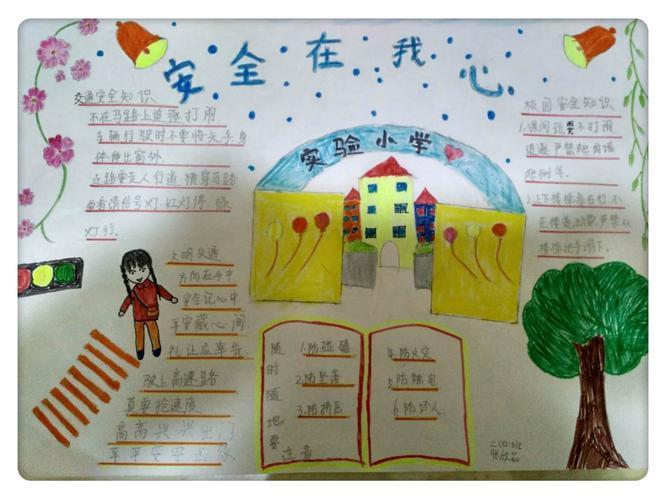 安全在我心
交通安全知识
不在马路上追逐打闹
车辆行驶时不要将头手身
体伸出窗外
走路要走人行道 横穿马路
要看清信号灯.红灯停 绿
灯行.
文明交通
方向在手中
安全记心中
平安藏心间
礼让应率先
驶上高速路
莫要抢速度
高高兴兴出门
平平安安回家
实验小学
校园安全知识
1.课间玩耍不打闹
追逐,严禁爬
树等.
2.上下楼梯靠右行,不
在楼道玩耍,严禁从
楼梯扶手滑下.
随时随地要注意
1.防磕碰
2.防坠落
3.防挤压
4.防火灾
5.防触电
6.防坏人